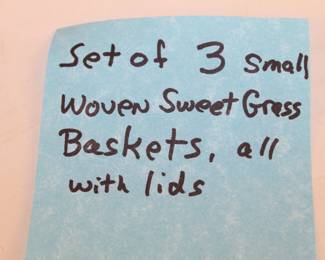 Set of 3 small
Woven Sweet Grass
Baskets, all
with lids